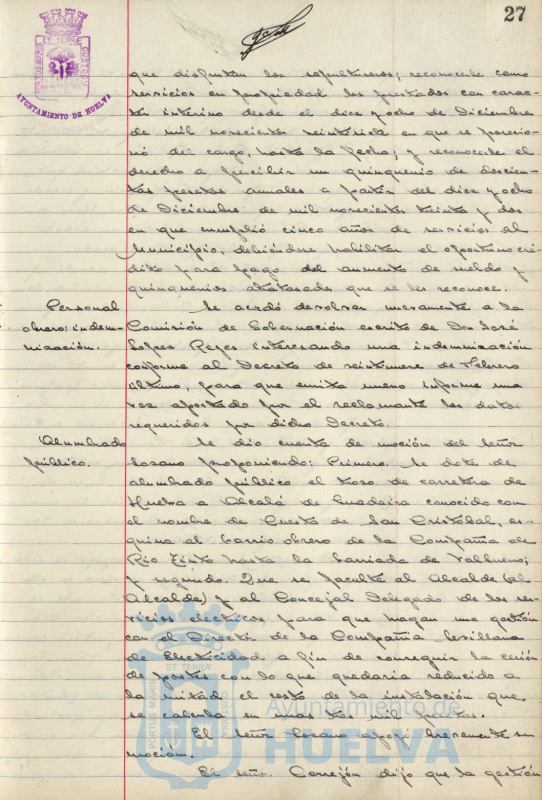 27
PORTUS MARIS
ET TERRÆ
CUSTODIA
AYUNTAMIENTO DE HUELVA
que disfrutan los sepultureros; reconocerle como
servicios en propiedad los prestados con carac-
ter interino desde el diez y ocho de Diciembre
de mil novecientos veintisiete en que se posesio-
nó del cargo, hasta la fecha; y reconocerle el
derecho a percibir un quinquenio de doscien-
tas pesetas anuales a partir del diez y ocho
de Diciembre de mil novecientos treinta y dos
en que cumplió cinco años de servicios al
Municipio, debiéndose habilitar el oportuno cré-
dito para pago del aumento de sueldo y
quinquenios atrasados que se les reconoce.
Personal
obrero: indem-
nización.
Se acordó devolver nuevamente a la
Comisión de Gobernación escrito de Don José
López Reyes interesando una indemnización
conforme al Decreto de veintinueve de Febrero
último, para que emita nuevo informe una
vez aportado por el reclamante los datos
requeridos por dicho Decreto.
Alumbrado
público.
Se dio cuenta de moción del señor
Lozano proponiendo: Primero. Se dote de
alumbrado público el trozo de carretera de
Huelva a Alcalá de Guadaira conocido con
el nombre de Cuesta de San Cristóbal, es-
quina al barrio obrero de la Compañía de
Rio Tinto hasta la barriada de Valbueno;
y segundo. Que se faculte al Alcalde (al
Alcalde) y al Concejal Delegado de los ser-
vicios electricos para que hagan una gestión
con el Director de la Compañía Sevillana
de Electricidad a fin de conseguir la cesión
de postes con lo que quedaria reducido a
la mitad el resto de la instalación que
se calcula en unas tres mil pesetas.
El señor Lozano apoyó brevemente su
moción.
El señor Correjón dijo que la gestión
Ayuntamiento de
HUELVA